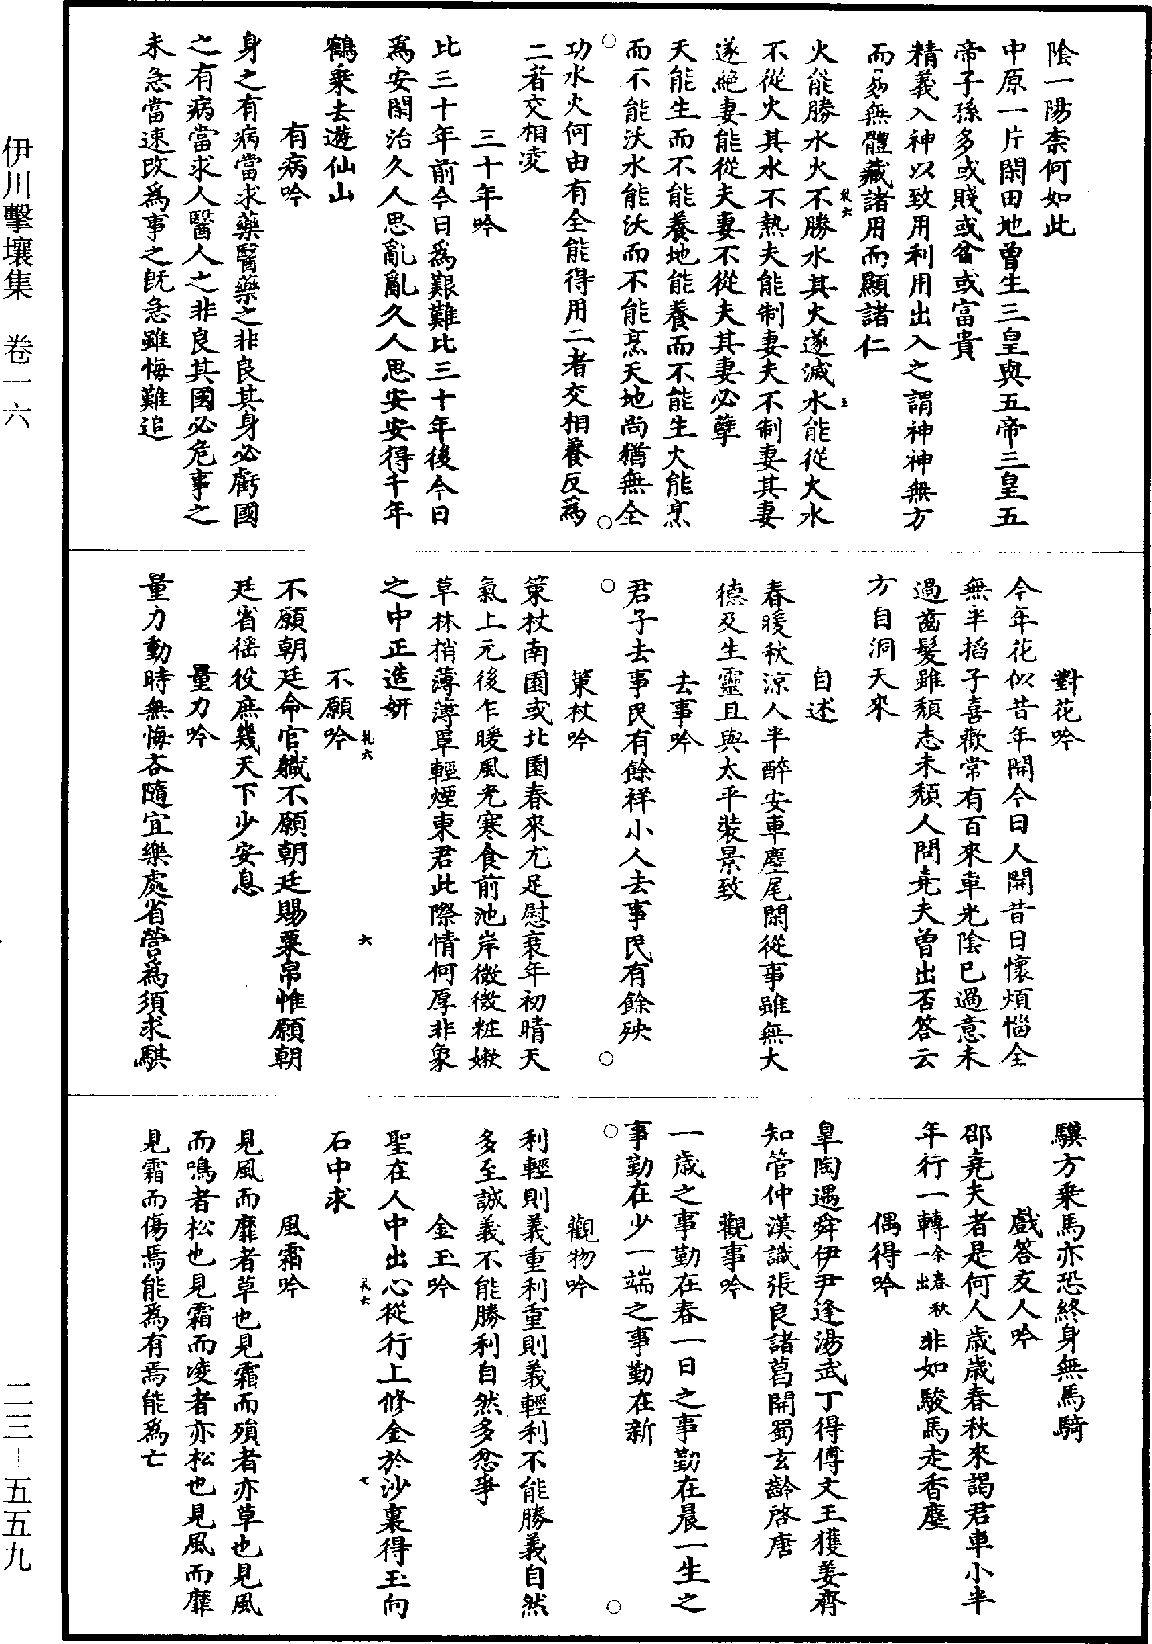 陰一陽柰何如此
中原一片閑田地曾生三皇與五帝三皇五
帝子孫多或賤或貧或富貴
精義入神以致用利用出入之謂神神無方
而易無體藏諸用而顯諸仁
火能勝水火不勝水其火遂滅水能從火水
不從火其水不熱夫能制妻夫不制妻其妻
遂絕妻能從夫妻不從夫其妻必孽
天能生而不能養地能養而不能生火能烹
而不能沃水能沃而不能烹天地尚猶無全
功水火何由有全能得用二者交相養反爲
二者交相凌
三十年吟
比三十年前今日爲艱難比三十年後今日
爲安閑治久人思亂亂久人思安安得千年
鶴乘去遊仙山
有病吟
身之有病當求藥醫藥之非良其身必虧國
之有病當求人醫人之非良其國必危事之
未急當速改爲事之既急雖悔難追
對花吟
今年花似昔年開今日人開昔日懷煩惱全
無半掐子喜歡常有百來車光陰已過意未
過齒髮雖頹志未頹人問堯夫曾出否答云
方自洞天來
自述
春暖秋涼人半醉安車塵尾閑從事雖無大
德及生靈且與太平裝景致
去事吟
君子去事民有餘祥小人去事民有餘殃
策杖吟
策杖南園或北園春來尤足慰衰年初晴天
氣上元後乍暖風光寒食前池岸微微粧嫩
草林梢薄薄罩輕煙東君此際情何厚非象
之中正造妍
不願吟
不願朝廷命官職不願朝廷賜粟帛惟願朝
廷省徭役庶幾天下少安息
量力吟
量力動時無悔吝隨宜樂處省營爲須求騏
驥方乘馬亦恐終身無馬騎
戲答友人吟
邵堯夫者是何人歲歲春秋來謁君車小半
年行一轉余春秋一出非如駿馬走香塵
偶得吟
皐陶遇舜伊尹逢湯武丁得傅文王獲姜齊
知管仲漢識張良諸葛開蜀玄齡啓唐
觀事吟
一歲之事勤在春一日之事勤在晨一生之
事勤在少一端之事勤在新
觀物吟
利輕則義重利重則義輕利不能勝義自然
多至誠義不能勝利自然多忿爭
金玉吟
聖在人中出心從行上修金於沙裏得玉向
石中求
風霜吟
見風而靡者草也見霜而殞者亦草也見風
而鳴者松也見霜而凌者亦松也見風而靡
見霜而傷焉能爲有焉能爲亡
伊川擊壤集　卷一六
二三—五五九